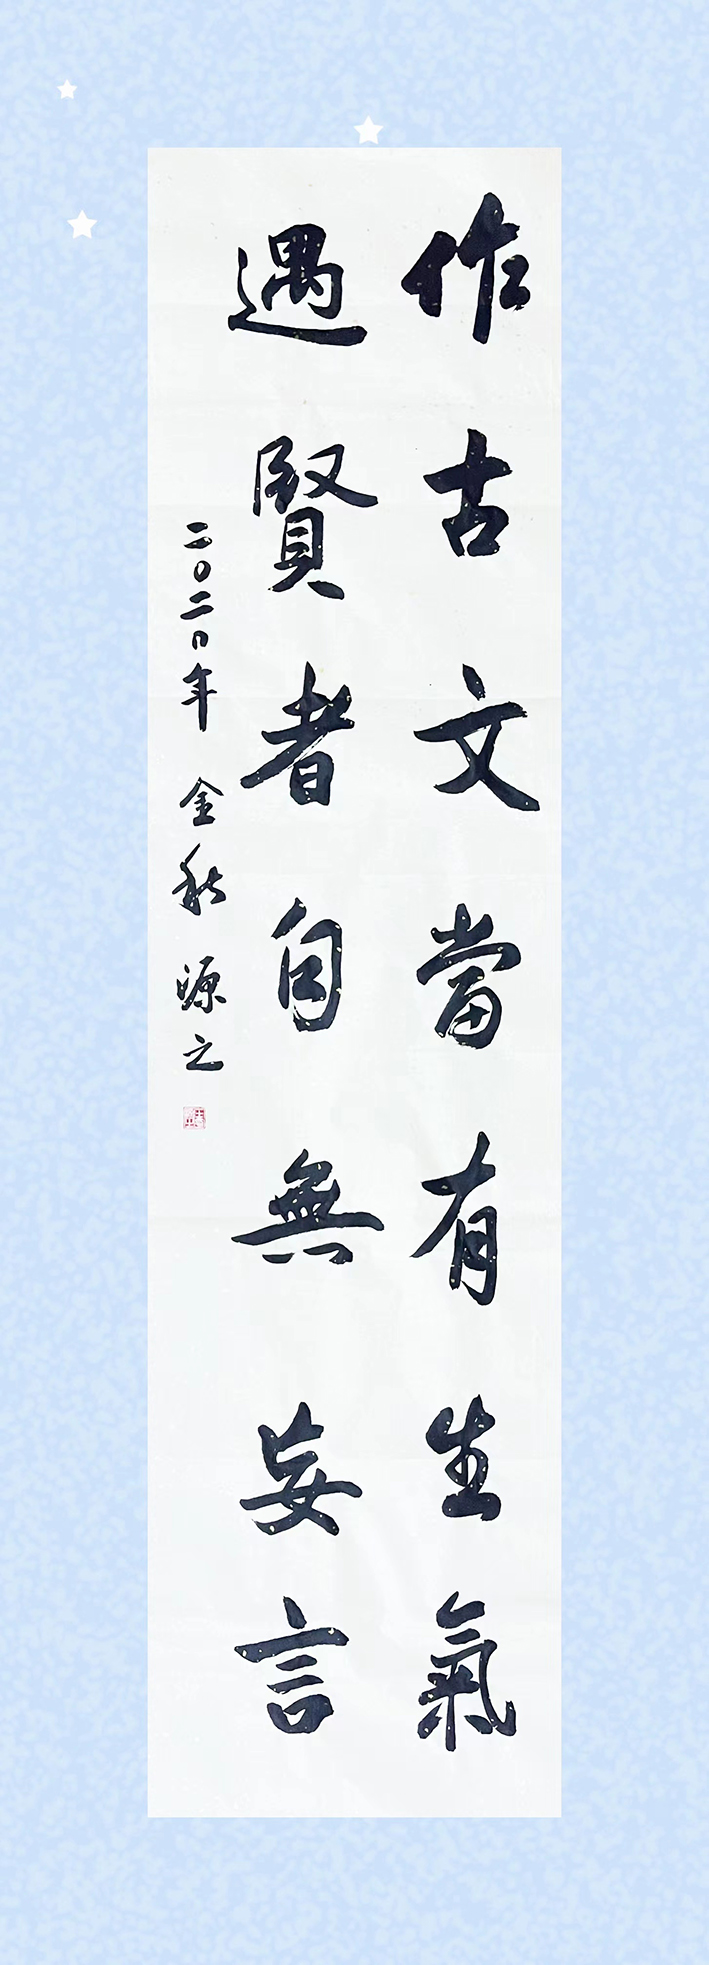 作古文當有生氣
遇賢者自無妄言
二〇二〇年 金秋 源之